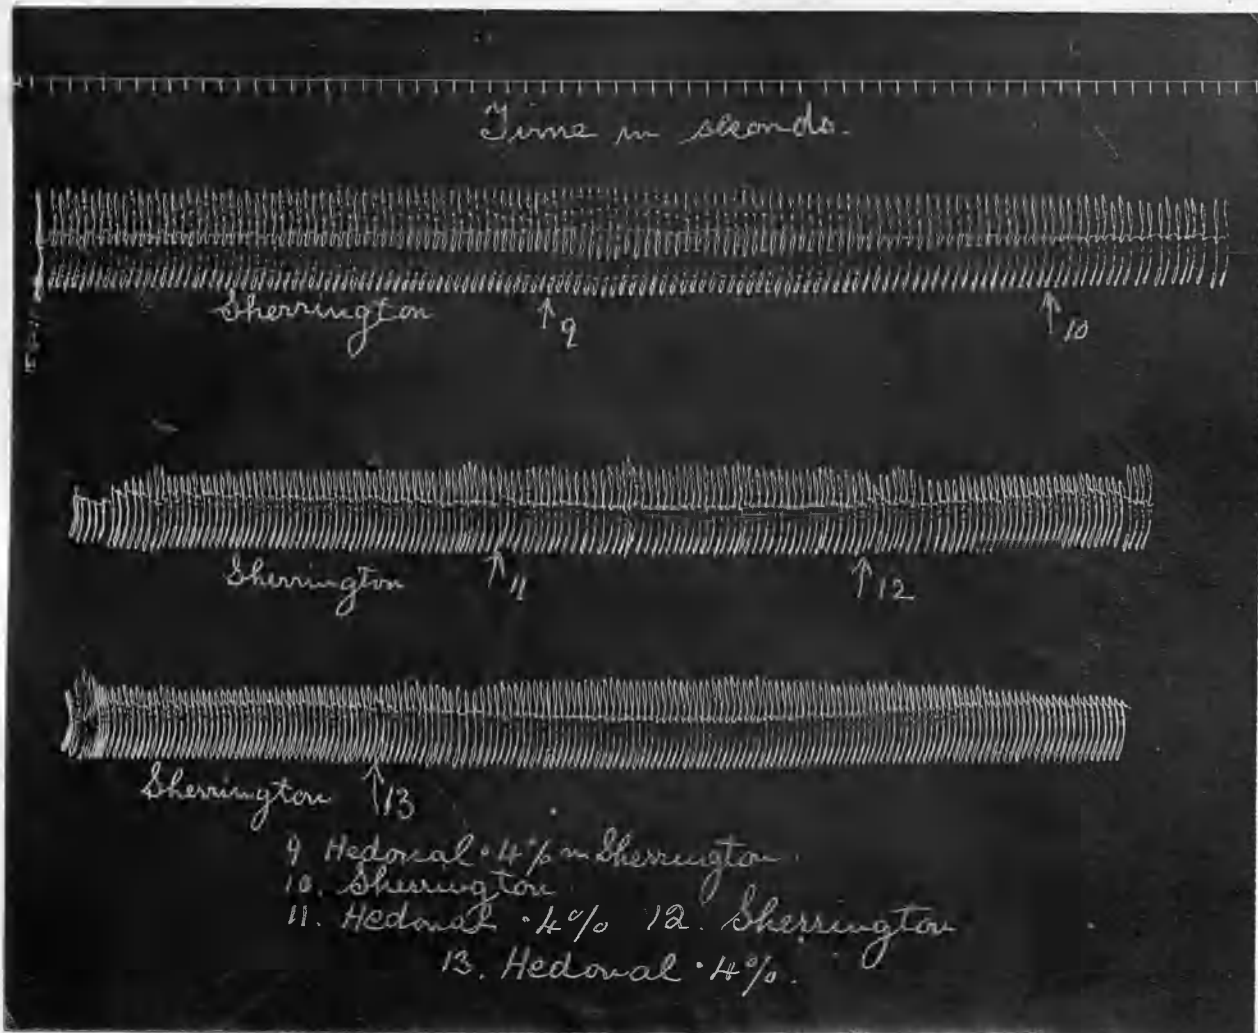 Time in seconds.
Sherrington
↑9
↑10
Sherrington
↑11
↑12
Sherrington
↑13
9 Hedonal ·4% in Sherrington.
10. Sherrington
11. Hedonal ·4% 12. Sherrington
13. Hedonal ·4%.